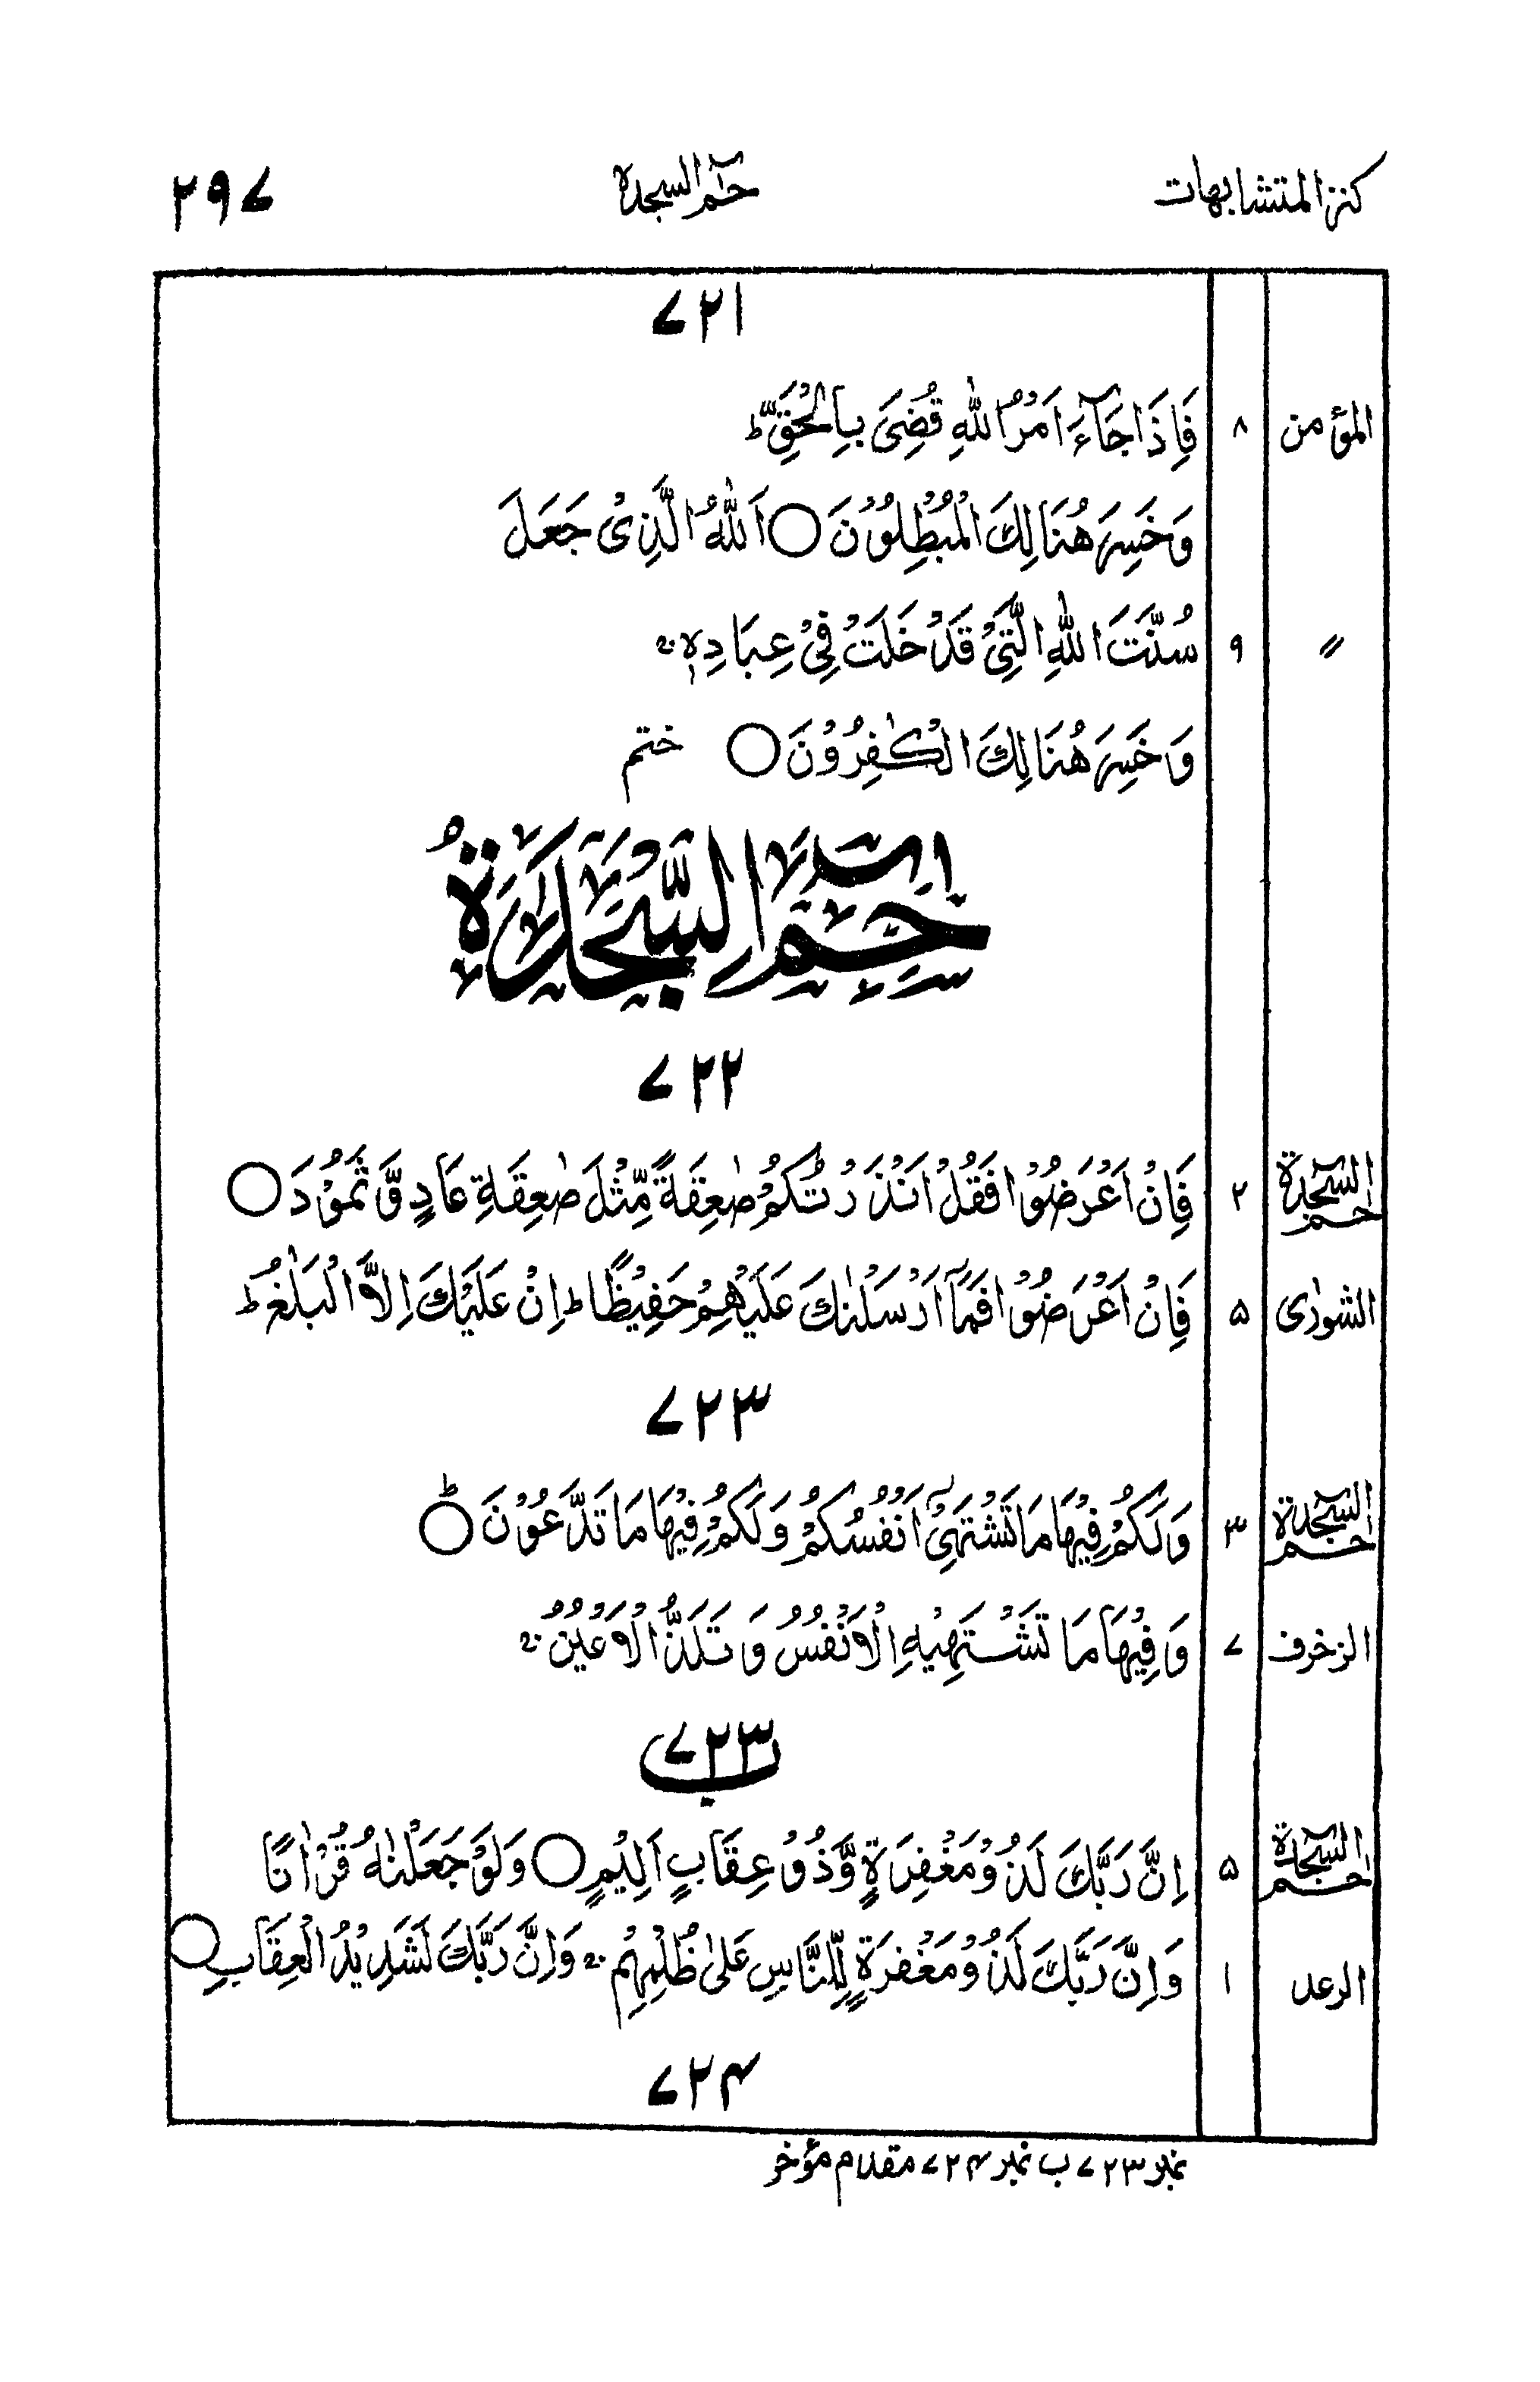 کنز المتشابهات حٰمٓ السجدہ ۲۹۷
۷۲۱
المؤمن ۸ فَاِذَا جَآءَ اَمْرُ اللّٰهِ قُضِیَ بِالْحَقِّ ط
وَخَسِرَ هُنَالِكَ الْمُبْطِلُوْنَ ○ اَللّٰهُ الَّذِیْ جَعَلَ
〃 ۹ سُنَّتَ اللّٰهِ الَّتِیْ قَدْ خَلَتْ فِیْ عِبَادِهٖ ج
وَخَسِرَ هُنَالِكَ الْكٰفِرُوْنَ ○ ختم
حٰمٓ السَّجْدَةُ
۷۲۲
حٰمٓ السجدة ۲ فَاِنْ اَعْرَضُوْا فَقُلْ اَنْذَرْتُكُمْ صٰعِقَةً مِّثْلَ صٰعِقَةِ عَادٍ وَّ ثَمُوْدَ ○
الشورٰی ۵ فَاِنْ اَعْرَضُوْا فَمَآ اَرْسَلْنٰكَ عَلَیْهِمْ حَفِیْظًا ط اِنْ عَلَیْكَ اِلَّا الْبَلٰغُ ط
۷۲۳
حٰمٓ السجدة ۳ وَلَكُمْ فِیْهَا مَا تَشْتَهِیْۤ اَنْفُسُكُمْ وَلَكُمْ فِیْهَا مَا تَدَّعُوْنَ ○ ط
الزخرف ۷ وَفِیْهَا مَا تَشْتَهِیْهِ الْاَنْفُسُ وَ تَلَذُّ الْاَعْیُنُ ج
۷۲۳ ب
حٰمٓ السجدة ۵ اِنَّ رَبَّكَ لَذُوْ مَغْفِرَةٍ وَّذُوْ عِقَابٍ اَلِیْمٍ ○ وَلَوْ جَعَلْنٰهُ قُرْاٰنًا
الرعد ۱ وَاِنَّ رَبَّكَ لَذُوْ مَغْفِرَةٍ لِّلنَّاسِ عَلٰی ظُلْمِهِمْ ج وَاِنَّ رَبَّكَ لَشَدِیْدُ الْعِقَابِ ○
۷۲۴
نمبر ۷۲۳ ب نمبر ۷۲۴ مقدم مؤخر